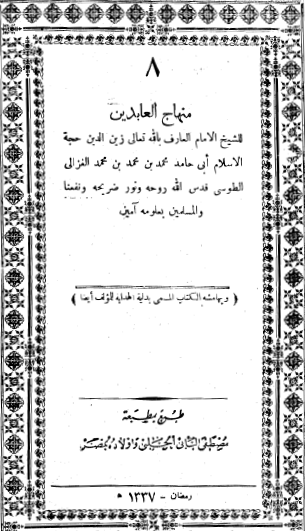 ٨
منهاج العابدين
للشيخ الامام العارف بالله تعالى زين الدين حجة
الاسلام أبى حامد محمد بن محمد بن محمد الغزالى
الطوسى قدس الله روحه ونور ضريحه ونفعنا
والمسلمين بعلومه آمين
( وبهامشه الكتاب المسمى بداية الهداية للمؤلف أيضا )
طبع بمطبعة
مصطفى البابى الحلبى وأولاده بمصر
رمضان - ١٣٣٧ ه